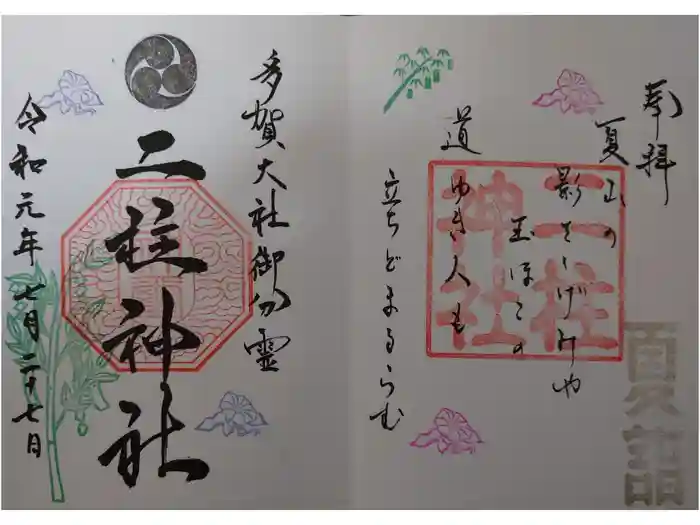 奉拝
夏山の
影をしげみや
玉ほこの
道ゆき人も
立ちどまるらむ
二柱
神社
夏詣
多賀大社御分霊
二柱神社
令和元年七月二十七日